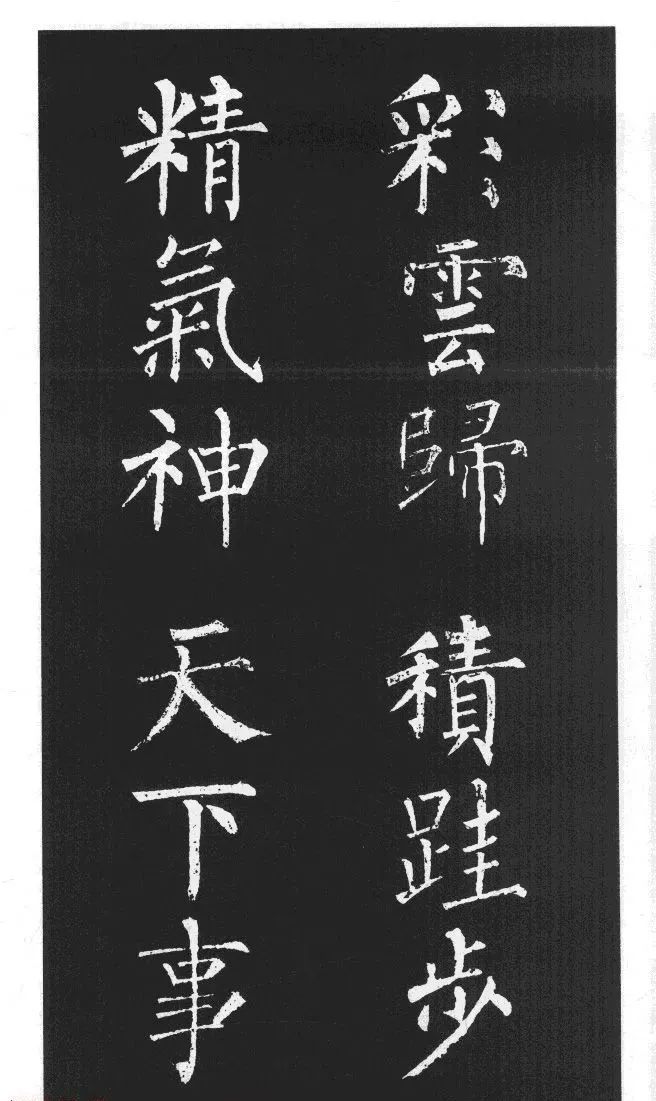 彩雲歸
積跬步
精氣神
天下事